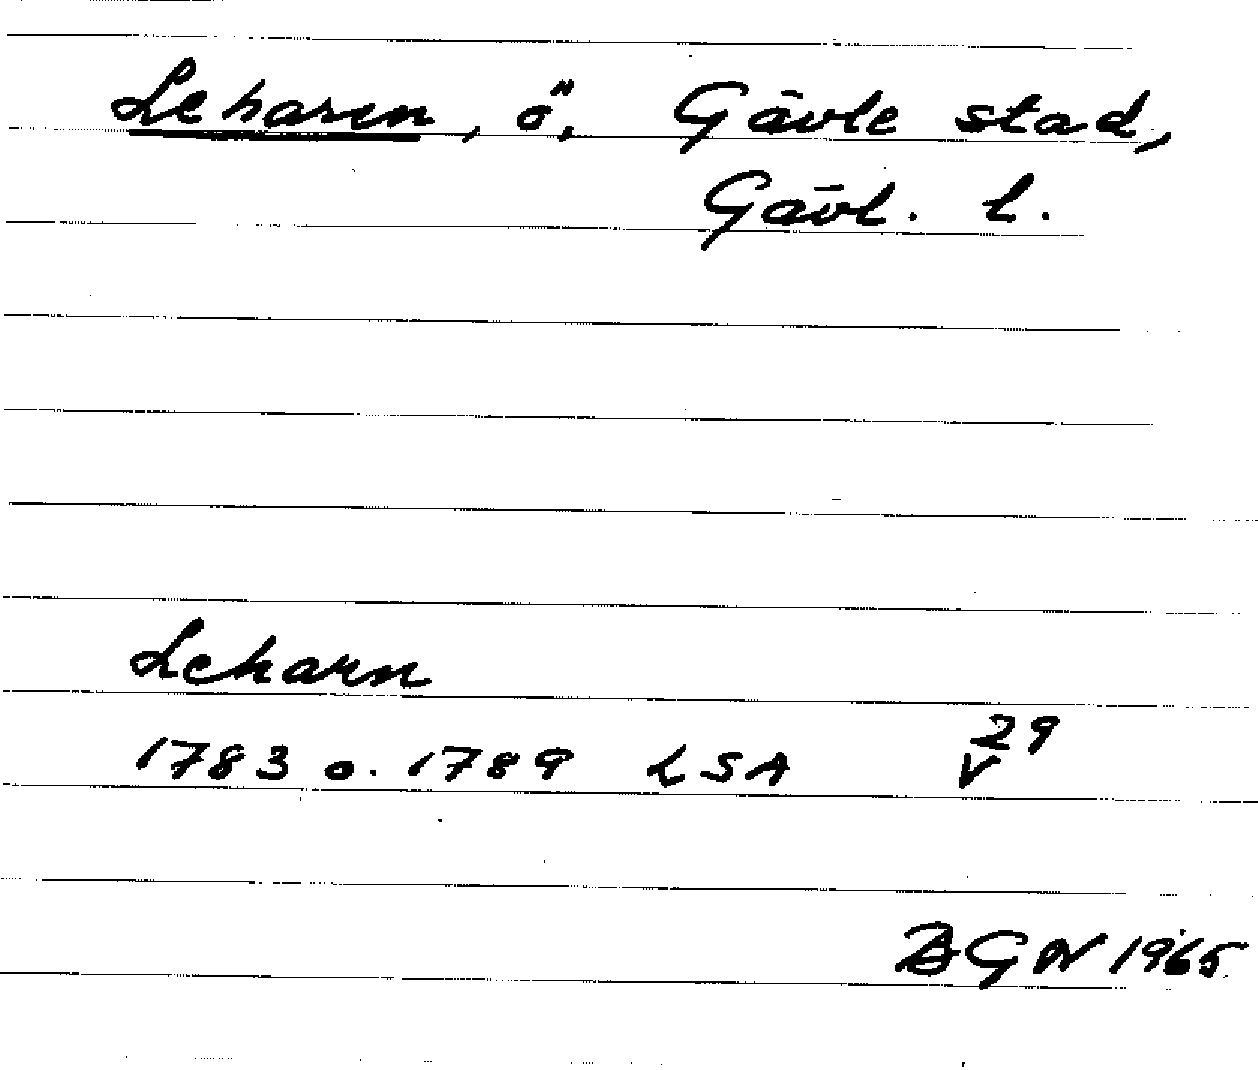 Leharen, ö, Gävle stad,
Gävl. l.
Leharn
1783 o. 1789 LSA V 29
BGN 1965